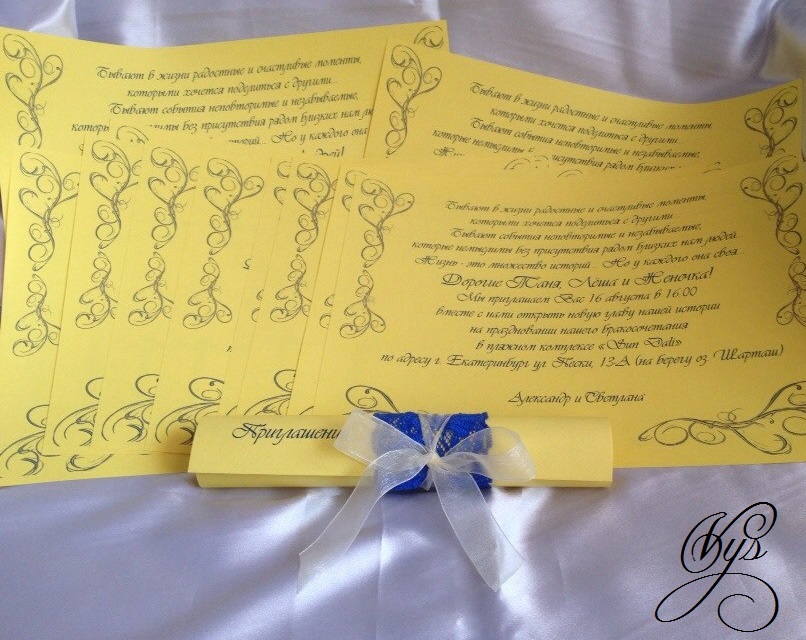 Бывают в жизни радостные и счастливые моменты,
которыми хочется поделиться с другими...
Бывают события неповторимые и незабываемые,
которые немыслимы без присутствия рядом близких нам
историй... Но у каждого она
Бывают в жизни радостные и счастливые моменты,
которыми хочется поделиться с другими...
Бывают события неповторимые и незабываемые,
которые немыслимы без присутствия рядом
Бывают в жизни радостные и счастливые моменты,
которыми хочется поделиться с другими...
Бывают события неповторимые и незабываемые,
которые немыслимы без присутствия рядом близких нам людей...
Жизнь - это множество историй... Но у каждого она своя...
Дорогие Таня, Лёша и Женечка!
Мы приглашаем Вас 16 августа в 16:00
вместе с нами открыть новую главу нашей истории
на праздновании нашего бракосочетания
в пляжном комплексе «Sun Dali»
по адресу г. Екатеринбург ул. Пески, 13-А (на берегу оз. Шарташ)
Александр и Светлана
Приглашени